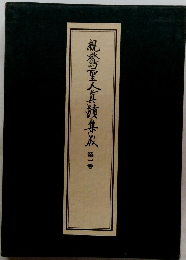 親鸞聖人真蹟集成
第一巻